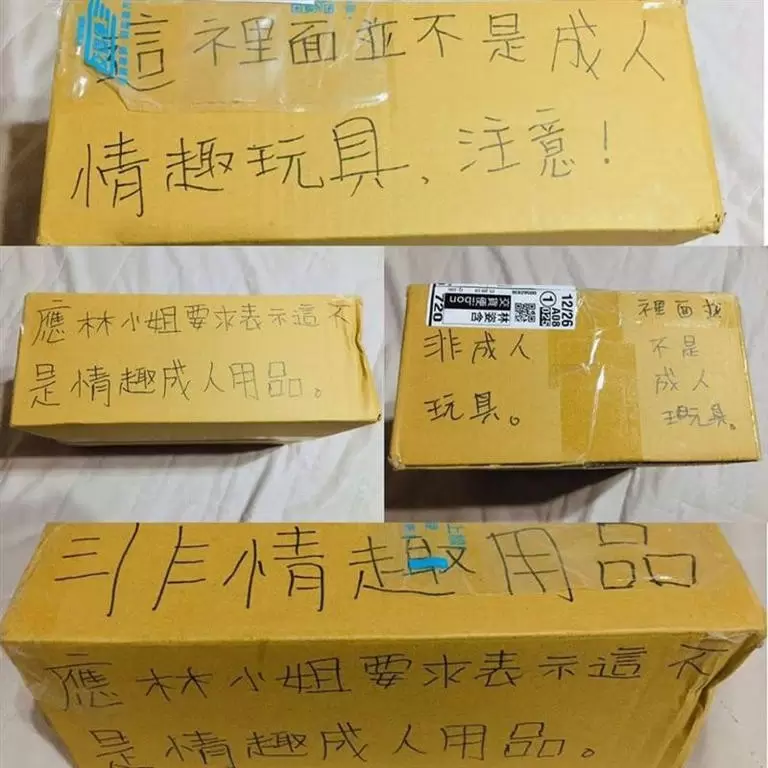 這裡面並不是成人
情趣玩具、注意！
應林小姐要求表示這不
是情趣成人用品。
12/26
① A08
交貨便ibon
林姿含
720
非成人
玩具。
裡面並
不是
成人
玩具。
非情趣用品
應林小姐要求表示這不
是情趣成人用品。